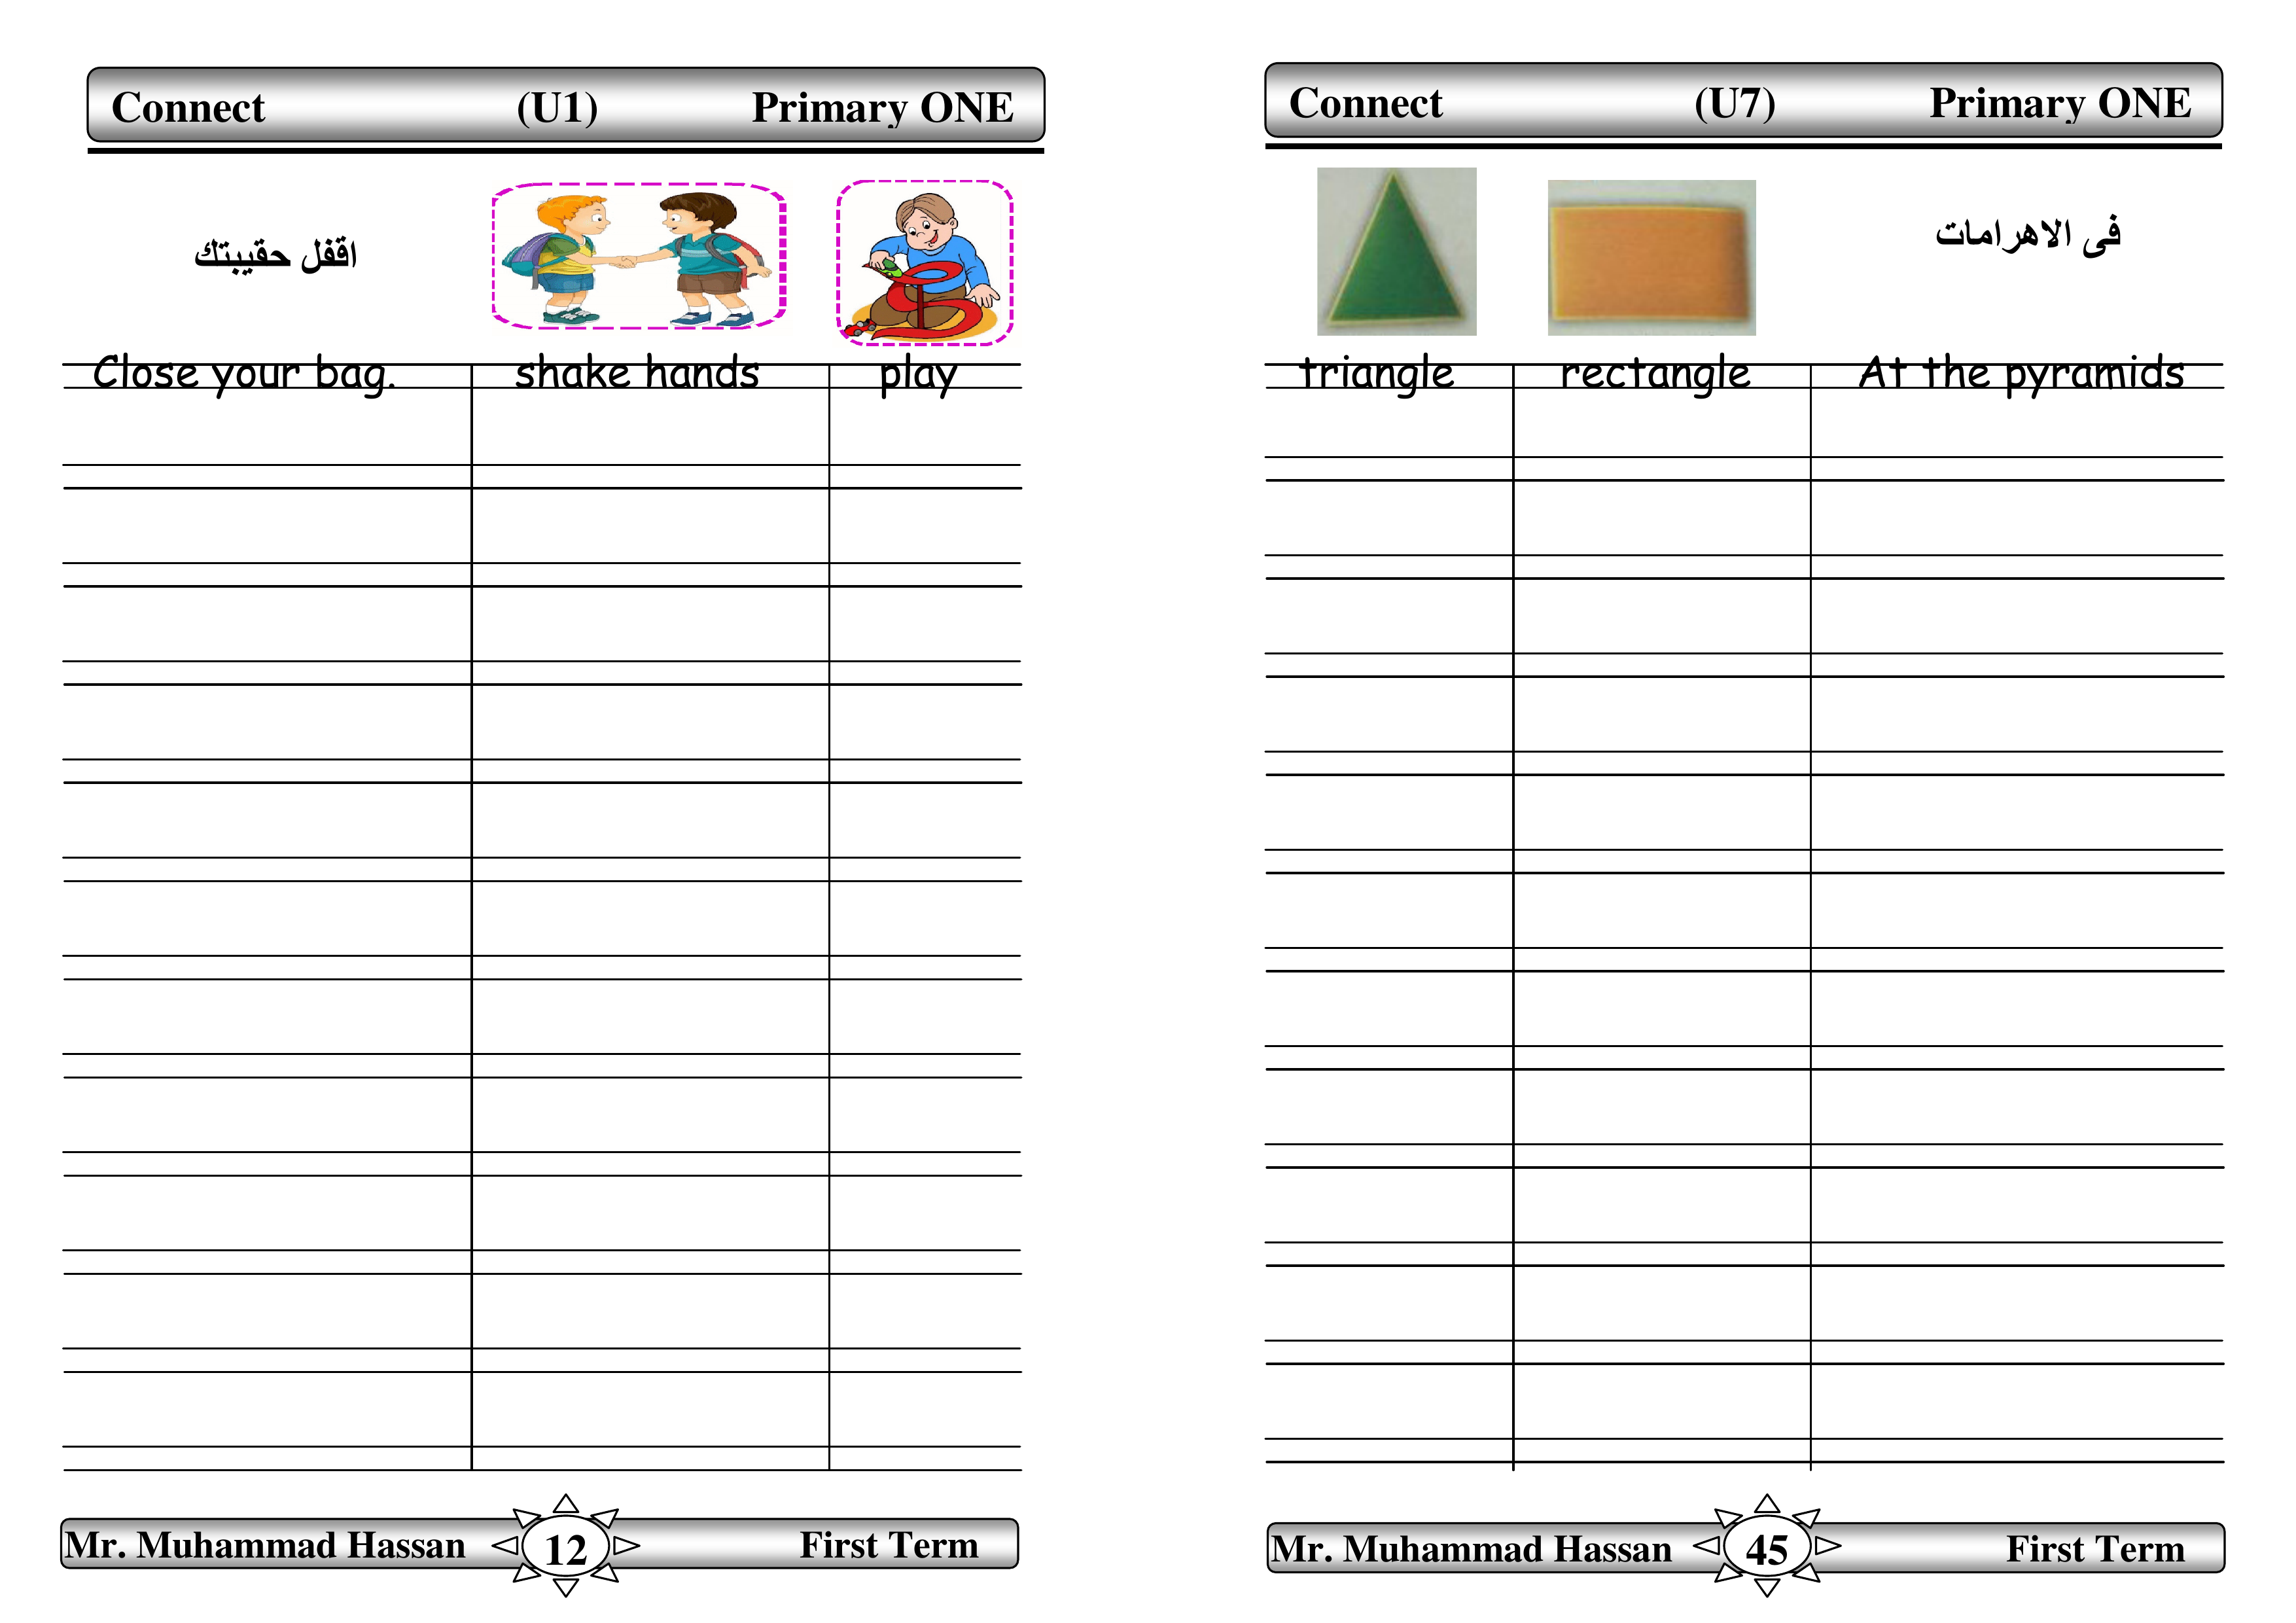 Connect (U1) Primary ONE
اقفل حقيبتك
Close your bag. shake hands play
Mr. Muhammad Hassan 12 First Term
Connect (U7) Primary ONE
فى الاهرامات
triangle rectangle At the pyramids
Mr. Muhammad Hassan 45 First Term